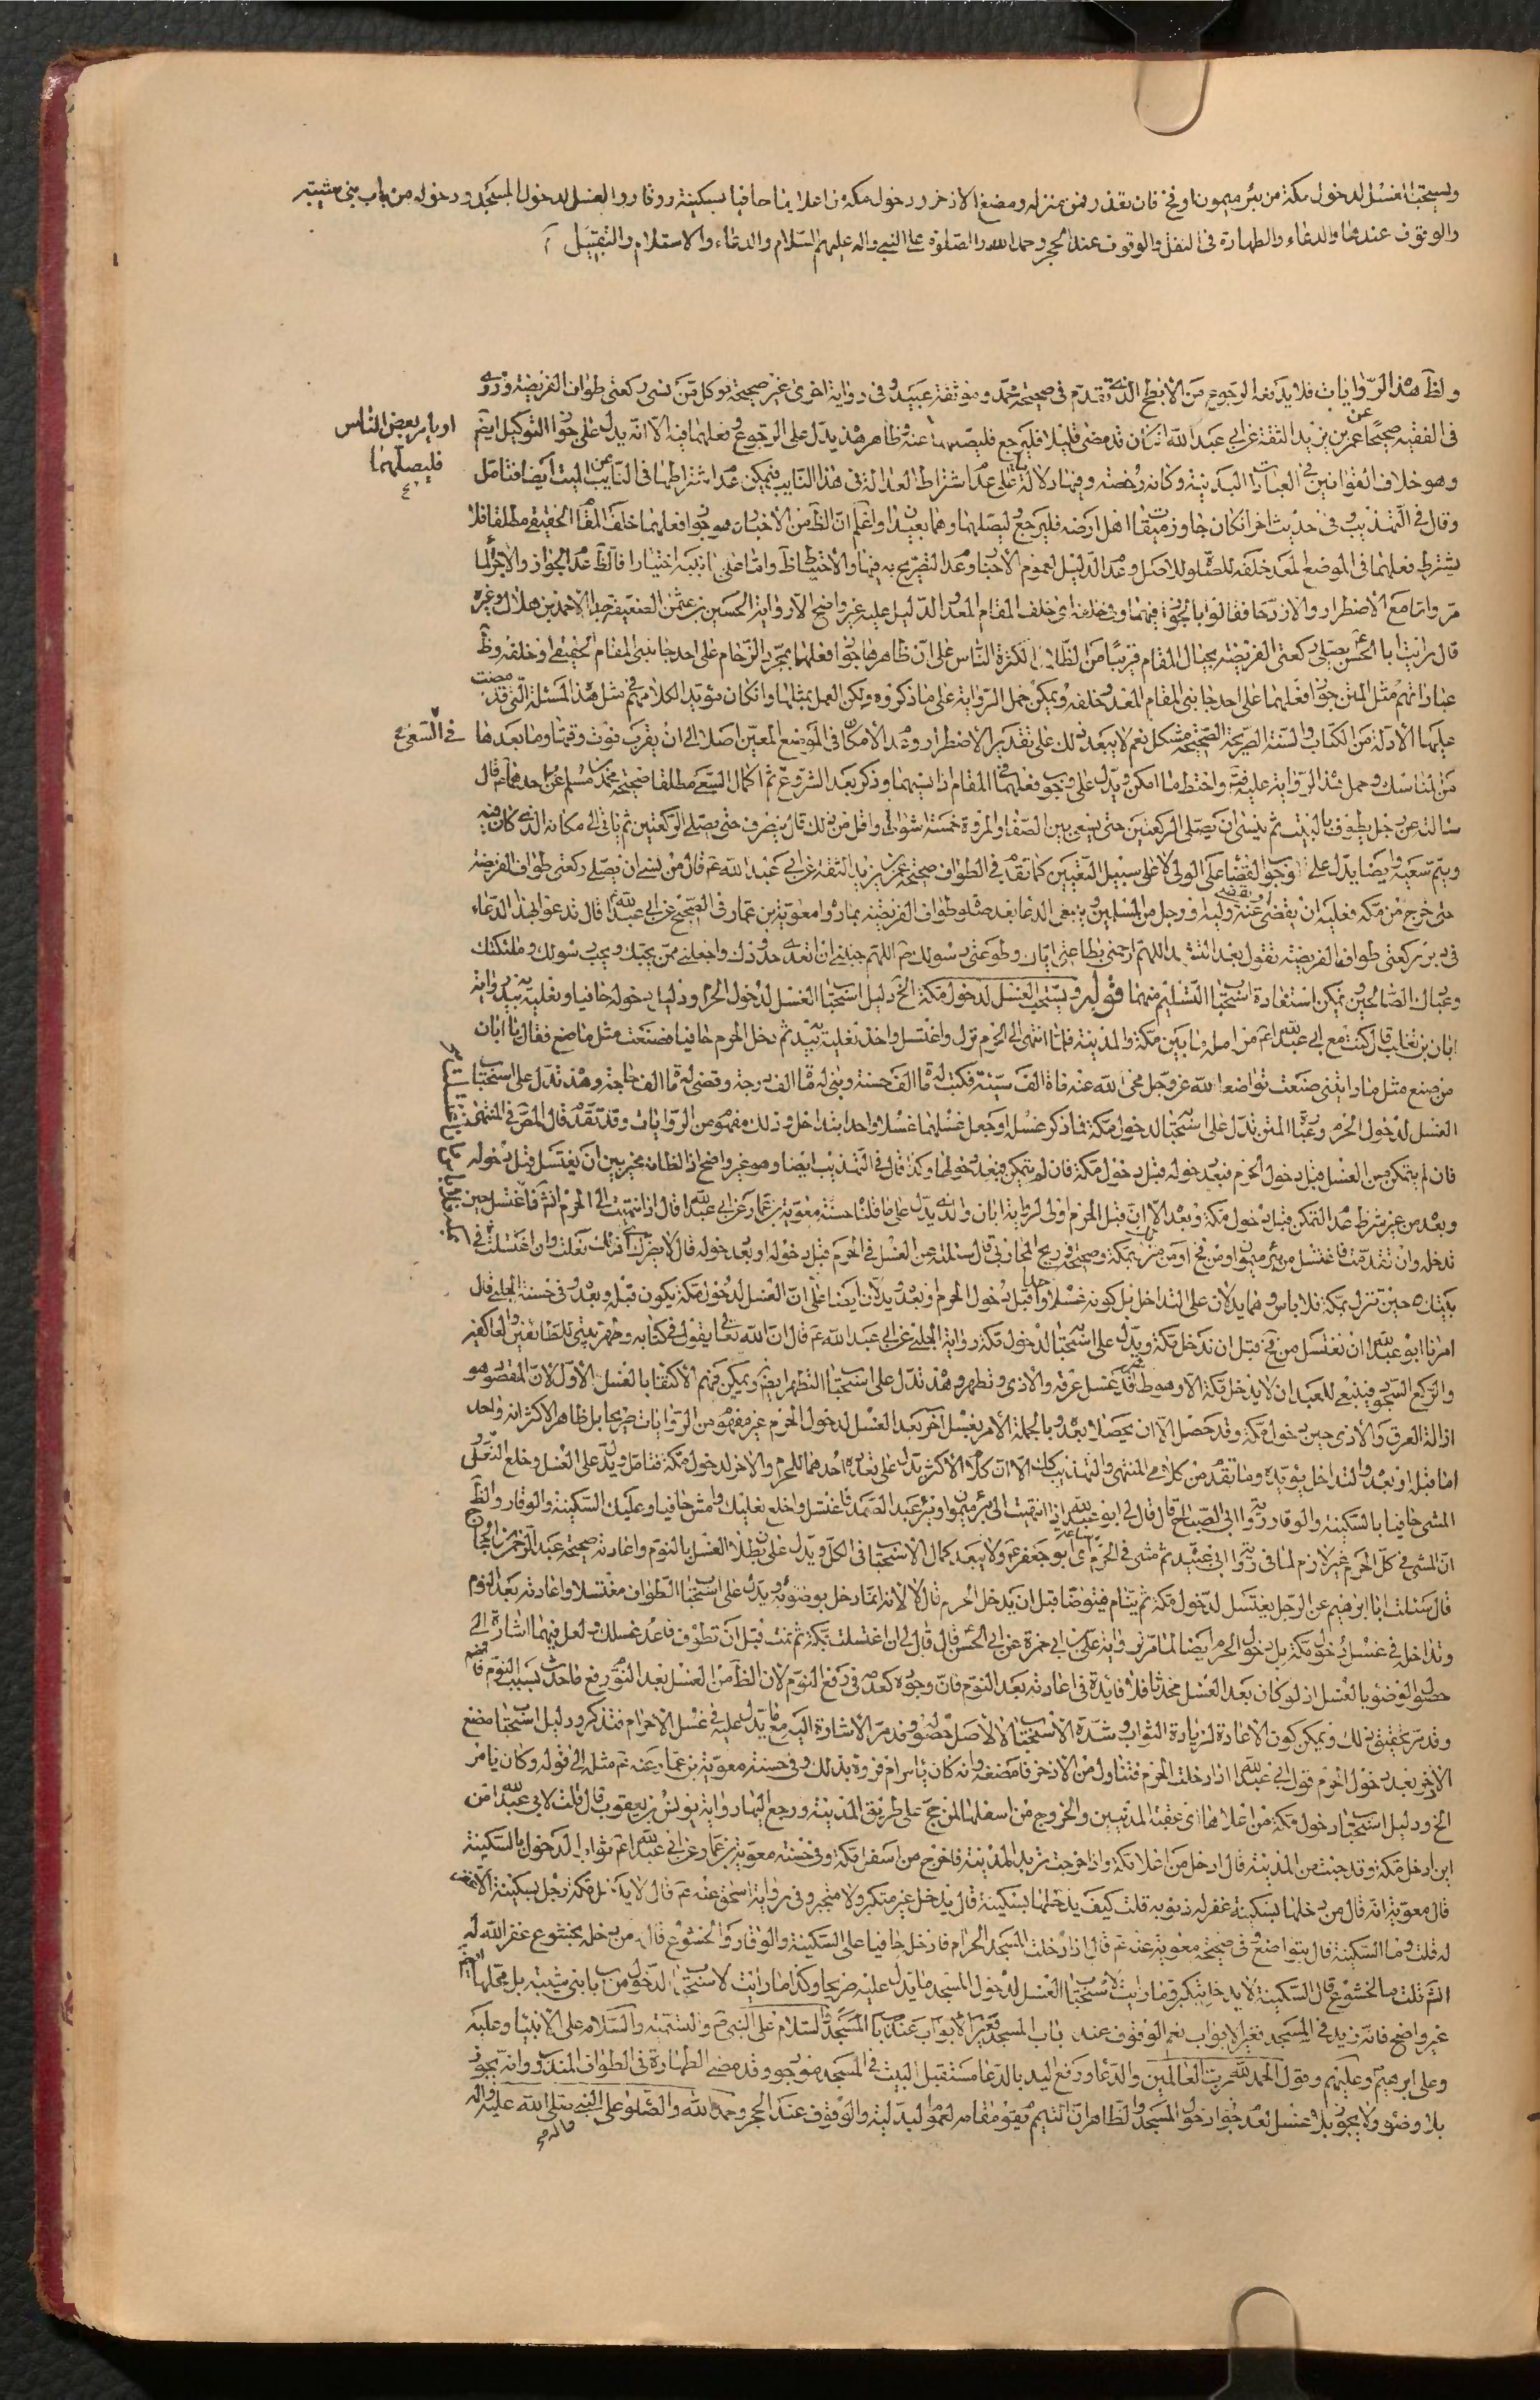 ويستحب الغسل لدخول مكة من بئر ميمون او فخ فان تعذر فمن منزله ومضغ الاذخر ودخول مكة من اعلاها حافيا بسكينة ووقار والغسل لدخول المسجد ودخوله من باب بني شيبة
والوقوف عندها والدعاء والطهارة في النفل والوقوف عند الحجر وحمد الله والصلوة على النبي واله عليهم السلام والدعاء والاستلام والتقبيل
ولظ هذه الروايات فلا يدفعه الرجوع من الابطح الذي تقدم في صحيحة محمد وموثقة عبيد وفي رواية اخرى غير صحيحة يوكل فمن نسي ركعتي طواف الفريضة وروى
او يامر بعض الناس
فليصلهما
في الفقيه صحيحا عن عمر بن يزيد الثقة عن ابي عبد الله ان كان قد مضى قليلا فليرجع فليصلهما عنه وظاهر هذه يدل على الرجوع وفعلهما فيه الا انه يدل على جواز التوكيل ايضا
وهو خلاف القوانين في العبادات البدنية وكانه رخصة وفيها دلالة على عدم اشتراط العدالة في هذا النايب فيمكن عدم اشتراطها في النايب عن الميت ايضا فتامل
وقال في التهذيب وفي حديث اخر ان كان جاوز ميقات اهل ارضه فليرجع وليصلهما وهما بعيدا واعلم ان الظ من الاخبار هو وجوب فعلهما خلف المقام الحقيقي مطلقا فلا
يشترط فعلهما في الموضع المعد خلفه للصلوة للاصل وعدم الدليل لعموم الاخبار وعدم التصريح به فيها والاحتياط ظ واما على جانبيه اختيارا فالظ عدم الجواز والاجزاء لما
مر واما مع الاضطرار والازدحام فقالوا بالجواز فيهما وفي خلفه اي خلف المقام المعد والدليل عليه غير واضح الا رواية الحسين بن عثمن الضعيفة جدا لاحمد بن هلال وغيره
قال رايت ابا الحسن يصلي ركعتي الفريضة بحيال المقام قريبا من الظلال لكثرة الناس على ان ظاهرها جواز فعلهما بمجرد الزحام على احد جانبي المقام الحقيقي وخلفه وظ
عباراتهم مثل المتن جواز فعلهما على احد جانبي المقام المعد وخلفه ويمكن حمل الرواية على ما ذكروه ولكن العمل بمثلها وان كان مؤيد الكلامهم في مثل هذه المسئلة التي قد مضت
عليها الادلة من الكتاب والسنة الصريحة الصحيحة مشكل نعم لا يبعد ذلك على تقدير الاضطرار وعدم الامكان في الموضع المعين اصلا الى ان يقرب فوت وقتها وما بعدها في السعي
من المناسك وحمل هذه الرواية عليه واحتط مهما امكن ويدل على وجوب فعلهما في المقام اذا نسيهما وذكر بعد الشروع ثم اكمال السعي مطلقا صحيحة محمد بن مسلم عن احدهما قال
سالته عن رجل يطوف بالبيت ثم ينسى ان يصلي الركعتين حتى يسعى بين الصفا والمروة خمسة اشواط او اقل من ذلك قال ينصرف حتى يصلي الركعتين ثم ياتي الى مكانه الذي كان فيه
ويتم سعيه وايضا يدل على وجوب القضاء على الولي لا على سبيل التعيين كما تقدم في الطواف صحيحة عمر بن يزيد الثقة عن ابي عبد الله ع قال من نسي ان يصلي ركعتي طواف الفريضة
حتى خرج من مكة فعليه ان يقضي او يقضي عنه وليه او رجل من المسلمين وينبغي الدعا بعد صلوة طواف الفريضة بما رواه معوية بن عمار في الصحيح عن ابي عبد الله قال تدعو بهذا الدعاء
في دبر ركعتي طواف الفريضة تقول بعد التشهد اللهم ارحمني بطاعتي اياك وطوعيتي رسولك ص اللهم جنبني ان اتعدى حدودك واجعلني ممن يحبك ويحب رسولك وملئكتك
وعبادك الصالحين ويمكن استفادة استحباب التسليم منهما قوله ويستحب الغسل لدخول مكة الخ دليل استحباب الغسل لدخول الحرم ودليل دخوله حافيا ونعليه بيديه رواية
ابان بن تغلب قال كنت مع ابي عبد الله ع مزامله ما بين مكة والمدينة فلما انتهى الى الحرم نزل واغتسل واخذ نعليه بيديه ثم دخل الحرم حافيا فصنعت مثل ما صنع فقال يا ابان
من صنع مثل ما رايتني صنعت تواضعا لله عز وجل محى الله عنه ماة الف سيئة وكتب له ماة الف حسنة وبنى له ماة الف درجة وقضى له ماة الف حاجة وهذه تدل على استحباب
الغسل لدخول الحرم وعبارة المتن تدل على استحبابه لدخول مكة فما ذكر غسله او جعل غسلهما غسلا واحدا بتداخل وذلك مفهوم من الروايات وقد تقدم قال المص في المنتهى
فان لم يتمكن من الغسل قبل دخول الحرم فبعد دخوله قبل دخول مكة فان لم يتمكن فبعد دخولها وكذا قال في التهذيب ايضا وهو غير واضح اذ الظ انه مخير بين ان يغتسل قبل دخوله
وبعده من غير شرط عدم التمكن قبل دخول مكة وبعده الا ان قبل الحرم اولى لرواية ابان والذي يدل على ما قلناه حسنة معوية بن عمار عن ابي عبد الله قال اذا انتهيت الى الحرم انش فاغتسل حين
تدخله وان تقدمت فاغتسل من بئر ميمون او من فخ او من منزلك بمكة وصحيحة ذريح المحاربي قال سئلته عن الغسل في الحرم قبل دخوله او بعد دخوله قال لا يضرك اي ذلك فعلت وان اغتسلت في
بيتك حين تنزل بمكة فلا باس وهما يدلان على التداخل بل كونه غسلا واحدا قبل دخول الحرم وبعده ويدلان ايضا على ان الغسل لدخول مكة يكون قبله وبعده وفي حسنة الحلبي قال
امرنا ابو عبد الله ان نغتسل من فخ قبل ان ندخل مكة ويدل على استحبابه لدخول مكة رواية الحلبي عن ابي عبد الله ع قال ان الله تعالى يقول في كتابه وطهر بيتي للطائفين والعاكفين
والركع السجود فينبغي للعبد ان لا يدخل مكة الا وهو طاهر قد غسل عرقه والاذى وتطهر وهذه تدل على استحباب التطهر ايضا ويمكن فهم الاكتفا بالغسل الاول لان المقصود هو
ازالة العرق والاذى حين دخول مكة وقد حصل الا ان يحصل بعده وبالجملة الامر بغسل آخر بعد الغسل لدخول الحرم غير مفهوم من الروايات صريحا بل ظاهر الاكثر انه واحد
اما قبله او بعده والتداخل يؤيده وما تقدم من كلام المنتهى والتهذيب كك الا ان كلام الاكثر يدل على تعدده احدهما للحرم والاخر لدخول مكة فتامل ويدل على الغسل وخلع النعلين
المشي حافيا بالسكينة والوقار رواية ابي الصباح قال قال لي ابو عبد الله اذا انتهيت الى بئر ميمون او بئر عبد الصمد فاغتسل واخلع نعليك وامش حافيا وعليك السكينة والوقار والظ
ان المشي في كل الحرم غير لازم لما في رواية ابي عبيدة ثم مشى في الحرم اي ابو جعفر ع ساعة ولا يبعد كمال الاستحباب في الكل ويدل على بطلان الغسل بالنوم واعادته صحيحة عبد الرحمن بن الحجاج
قال سئلت ابا ابرهيم عن الرجل يغتسل لدخول مكة ثم ينام فيتوضا قبل ان يدخل الحرم قال لا لانه انما دخل بوضوء ويدل على استحباب الطواف مغتسلا واعادته بعد النوم
وتداخله في غسل دخول مكة بل دخول الحرم ايضا لما مر رواية علي بن ابي حمزة عن ابي الحسن قال قال لي ان اغتسلت بمكة ثم نمت قبل ان تطوف فاعد غسلك ولعل فيهما اشارة الى
حصول الوضوء بالغسل اذ لو كان بعد الغسل محدثا فلا فايدة في اعادته بعد النوم فان وجوده كعدمه في رفع النوم لان الظ من الغسل بعد النوم رفع ما حدث بسبب النوم فافهم
وقد مر تحقيق ذلك ويمكن كون الاعادة لزيادة الثواب وشدة الاستحباب لا لاصل حصوله وقد مر الاشارة اليه مع ما يدل عليه في غسل الاحرام فتذكر ودليل استحباب مضغ
الاذخر بعد دخول الحرم قول ابي عبد الله اذا دخلت الحرم فتناول من الاذخر فامضغه وانه كان يامر ام فروة بذلك وفي حسنة معوية بن عمار عنه ع مثله الى قوله وكان يامر
الخ ودليل استحباب دخول مكة من اعلاها اي عقبة المدنيين والخروج من اسفلها لمن حج على طريق المدينة ورجع اليها رواية يونس بن يعقوب قال قلت لابي عبد الله من
اين ادخل مكة وقد جئت من المدينة قال ادخل من اعلا مكة واذا خرجت تريد المدينة فاخرج من اسفل مكة وفي حسنة معوية بن عمار عن ابي عبد الله ع ثواب الدخول بالسكينة
قال معوية انه قال من دخلها بسكينة غفر له ذنوبه قلت كيف يدخلها بسكينة قال يدخل غير متكبر ولا متجبر وفي رواية اسحق عنه ع قال لا يدخل مكة رجل بسكينة الا غفر
له قلت وما السكينة قال بتواضع وفي صحيحة معوية عنه ع قال اذا دخلت المسجد الحرام فادخله حافيا على السكينة والوقار والخشوع قال من دخله بخشوع غفر الله له
انش قلت ما الخشوع قال السكينة لا يدخله بتكبر وما رايت لاستحباب الغسل لدخول المسجد ما يدل عليه صريحا وكذا ما رايت لاستحباب الدخول من باب بني شيبة بل محلها ايضا
غير واضح فانه زيد في المسجد فتغير الابواب نعم الوقوف عند باب المسجد فتغير الابواب عند باب المسجد والسلام على النبي ص والتسمية والسلام على الانبيا وعليه
وعلى ابرهيم وعليهم وقول الحمد لله رب العالمين والدعا ورفع اليد بالدعا مستقبل البيت في المسجد موجود وقد مضى الطهارة في الطواف المندوب وانه يجوز
بلا وضوء ولا يجوز بلا غسل لعدم جواز دخول المسجد والظاهر ان التيمم يقوم مقامه لعموم البدلية والوقوف عند الحجر وحمد الله والصلوة على النبي صلى الله عليه واله